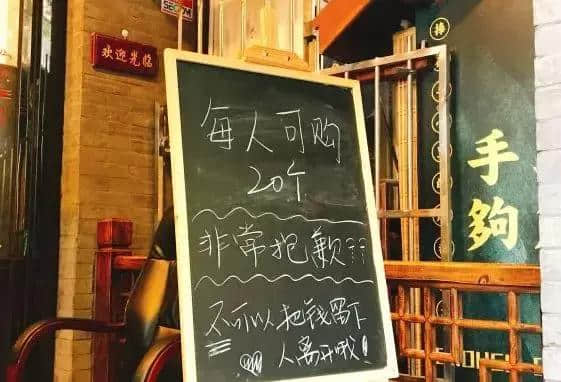 欢迎光临
每人可购
20个
非常抱歉
不可以把钱留下
人离开哦!
手夠